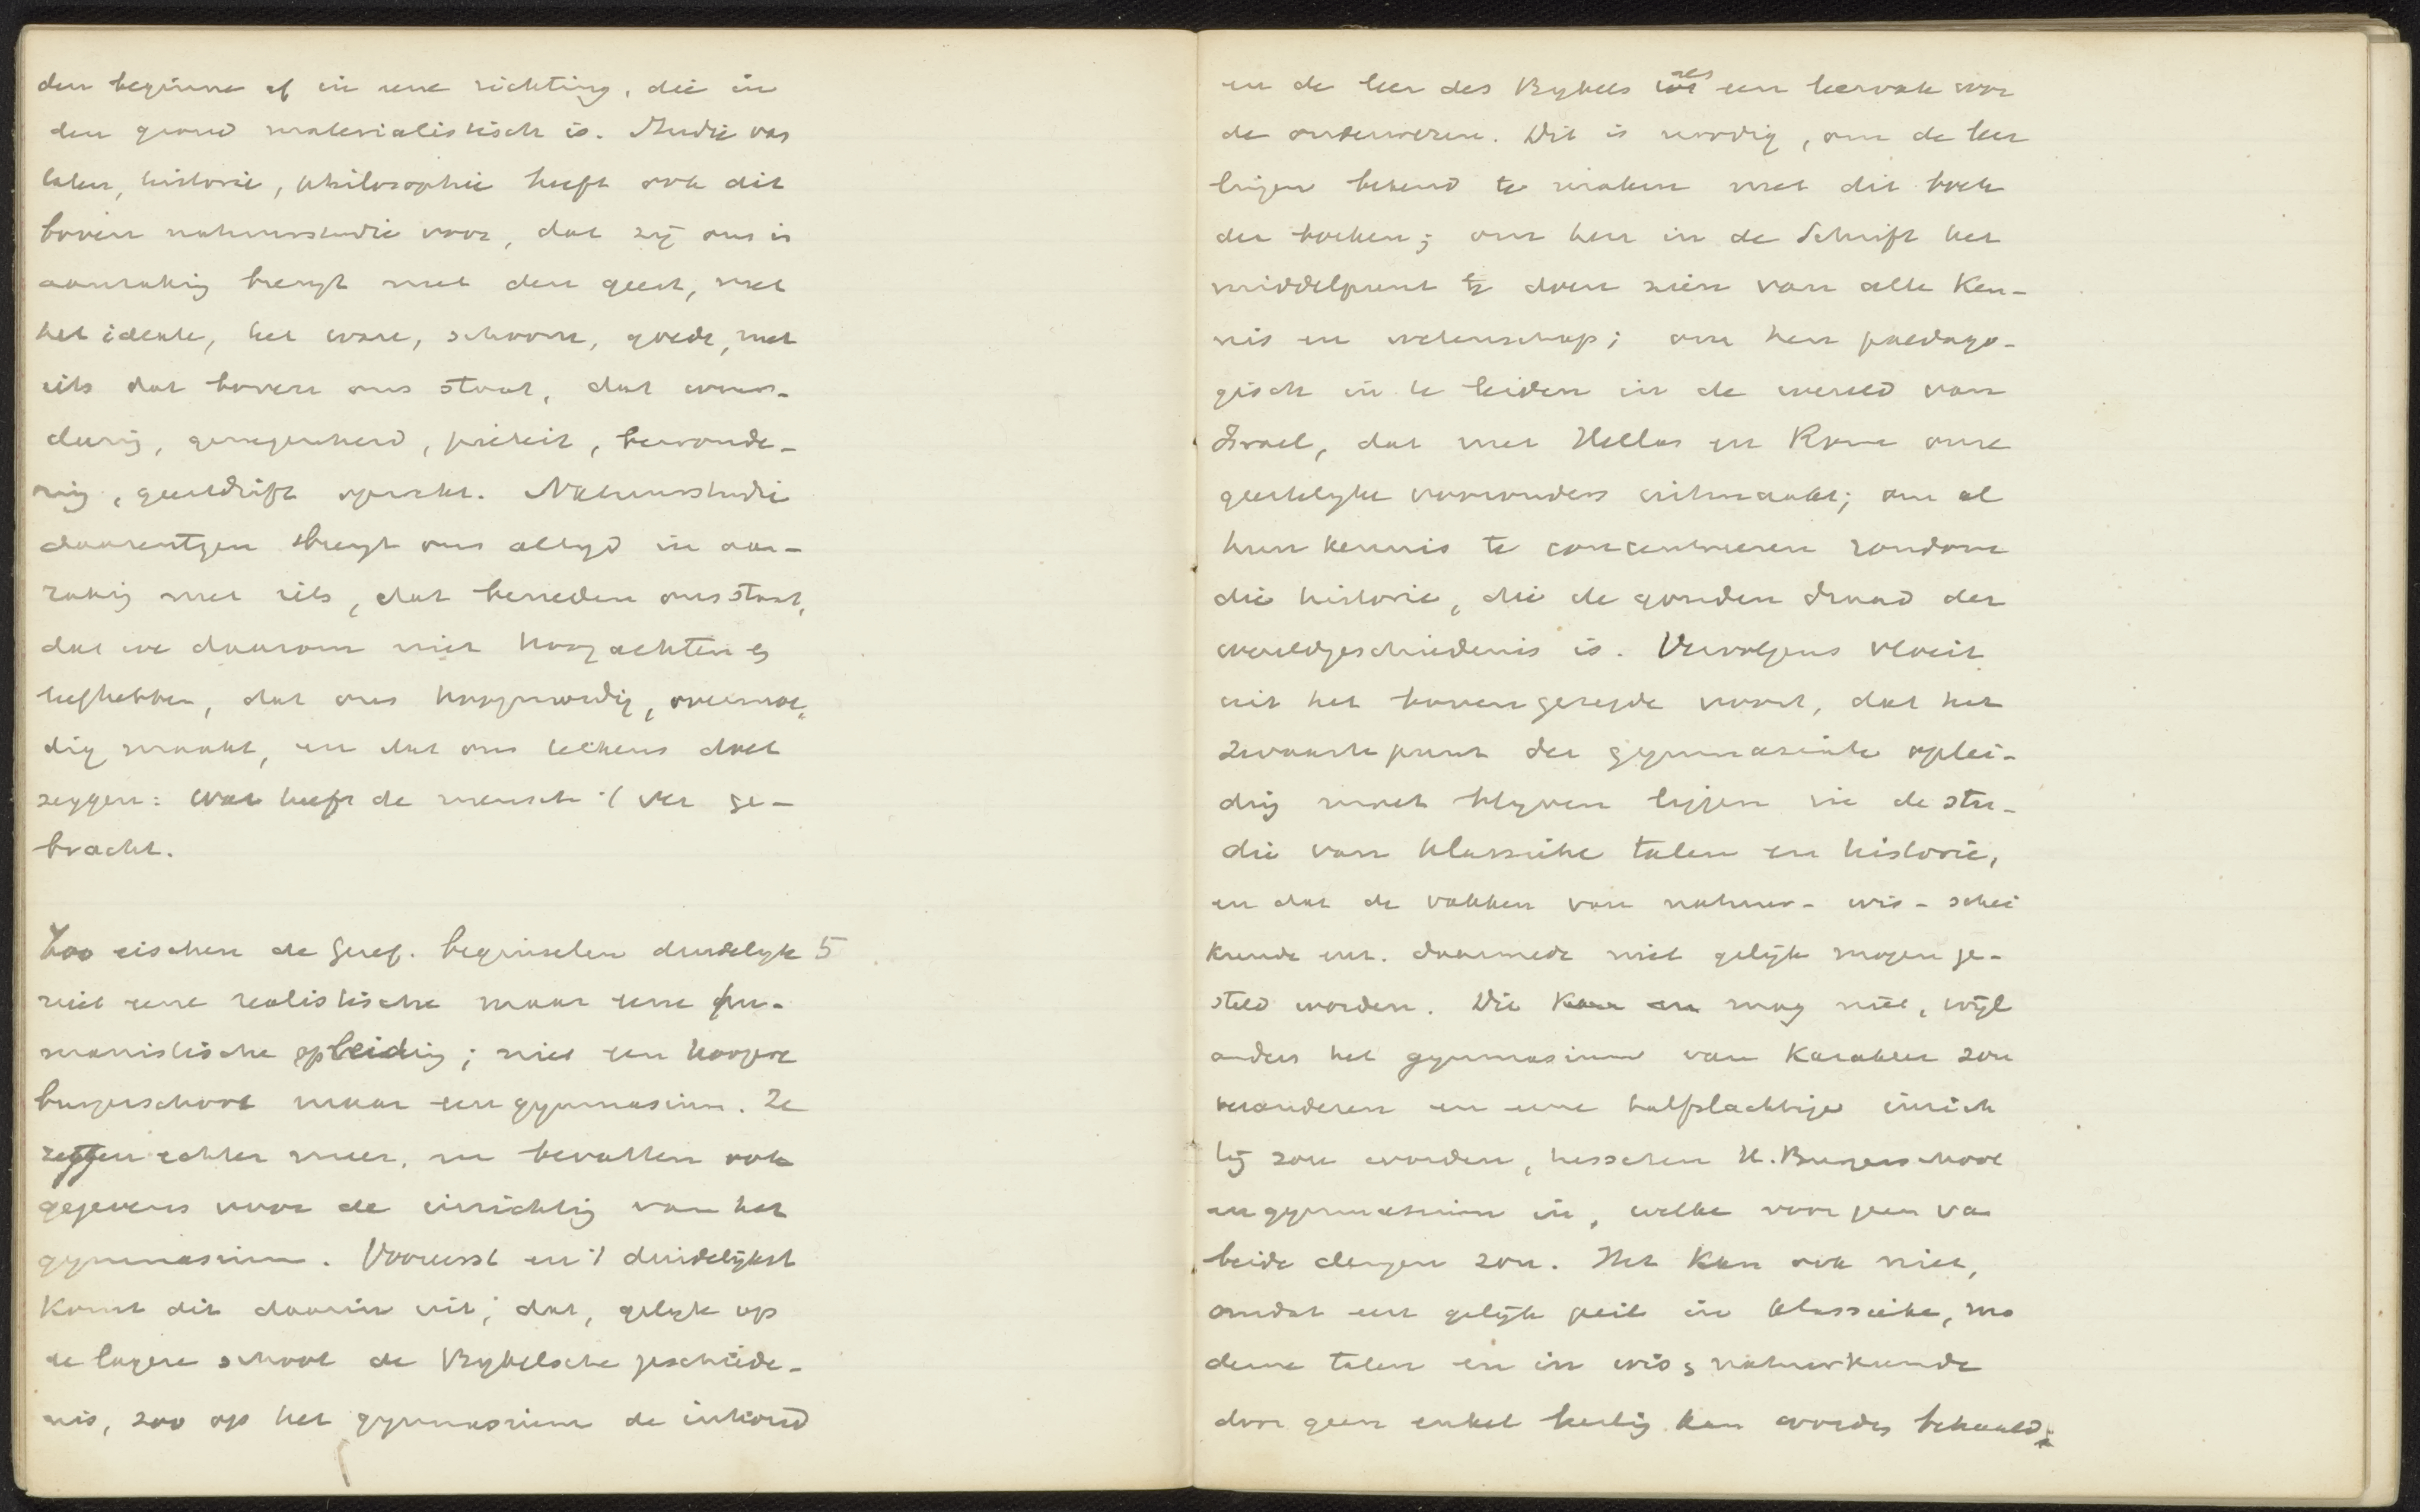 den beginne af in eene richting, die in
den grond materialistisch is. Studie van
talen, historie, philosophie heeft ook dit
boven natuurstudie voor, dat zij ons in
aanraking brengt met den geest, met
het ideale, het ware, schoone, goede, met
iets dat boven ons staat, dat
, genegenheid, piëteit, bewonde-
ring, geestdrift opwekt. Natuurstudie
daarentegen brengt ons altijd in aan-
raking met iets, dat beneden ons staat,
dat we daarom niet hoogachten en
liefhebben, dat ons hoogmoedig, overmoe-
dig maakt, en dat ons telkens doet
zeggen: wat heeft de mensch 't ver ge-
bracht.
Zoo eischen de Geref. beginselen duidelyk 5
niet eene realistische maar eene hu-
manistische opleiding; niet een hoogere
burgerschool maar een gymnasium. Ze
zeggen echter meer, en bevatten ook
gegevens voor de inrichting van het
gymnasium. Vooreerst en 't duidelijkst
komt dit daarin uit, dat, gelyk op
de lagere school de Bybelsche geschiede-
nis, zoo op het gymnasium de inhoud
en de leer des Bybels als een leervak voor
de onderwezen. Dit is noodig, om de leer
lingen bekend te maken met dit boek
der boeken; om hen in de Schrift het
middelpunt te doen zien van alle ken-
nis en wetenschap; om hen paedago-
gisch in te leiden in de wereld van
Israel, dat met Hellas en Rome onze
geestelyke voorouders uitmaakt; om al
hun kennis te concentreeren rondom
die historie, die de gouden draad der
wereldgeschiedenis is. Vervolgens vloeit
uit het bovengezegde voort, dat het
zwaartepunt der gymnasiale oplei-
ding moet blyven liggen in de stu-
die van klassieke talen en historie,
en dat de vakken van natuur- wis- schei
kunde enz. daarmede niet gelijk mogen ge-
steld worden. Dit kan en mag niet, wijl
anders het gymnasium van karakter zou
veranderen en eene halfslachtige inrich
ting zou worden, tusschen H. Burgerschool
en gymnasium in, welke voor geen van
beide deugen zou. Het kan ook niet,
omdat een gelijk peil in klassieke, mo
derne talen en in wis en natuurkunde
door geen enkel leerling kan worden behaald;